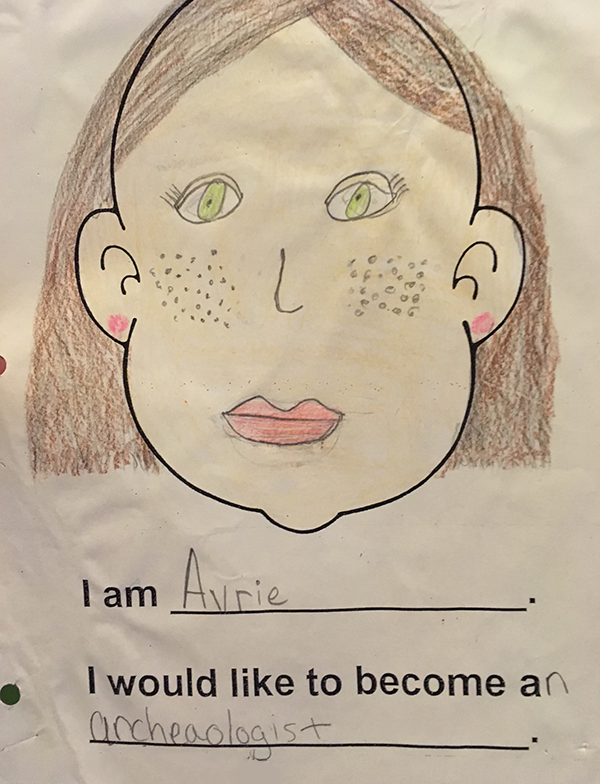 I am Avrie.
I would like to become an
archeaologist.